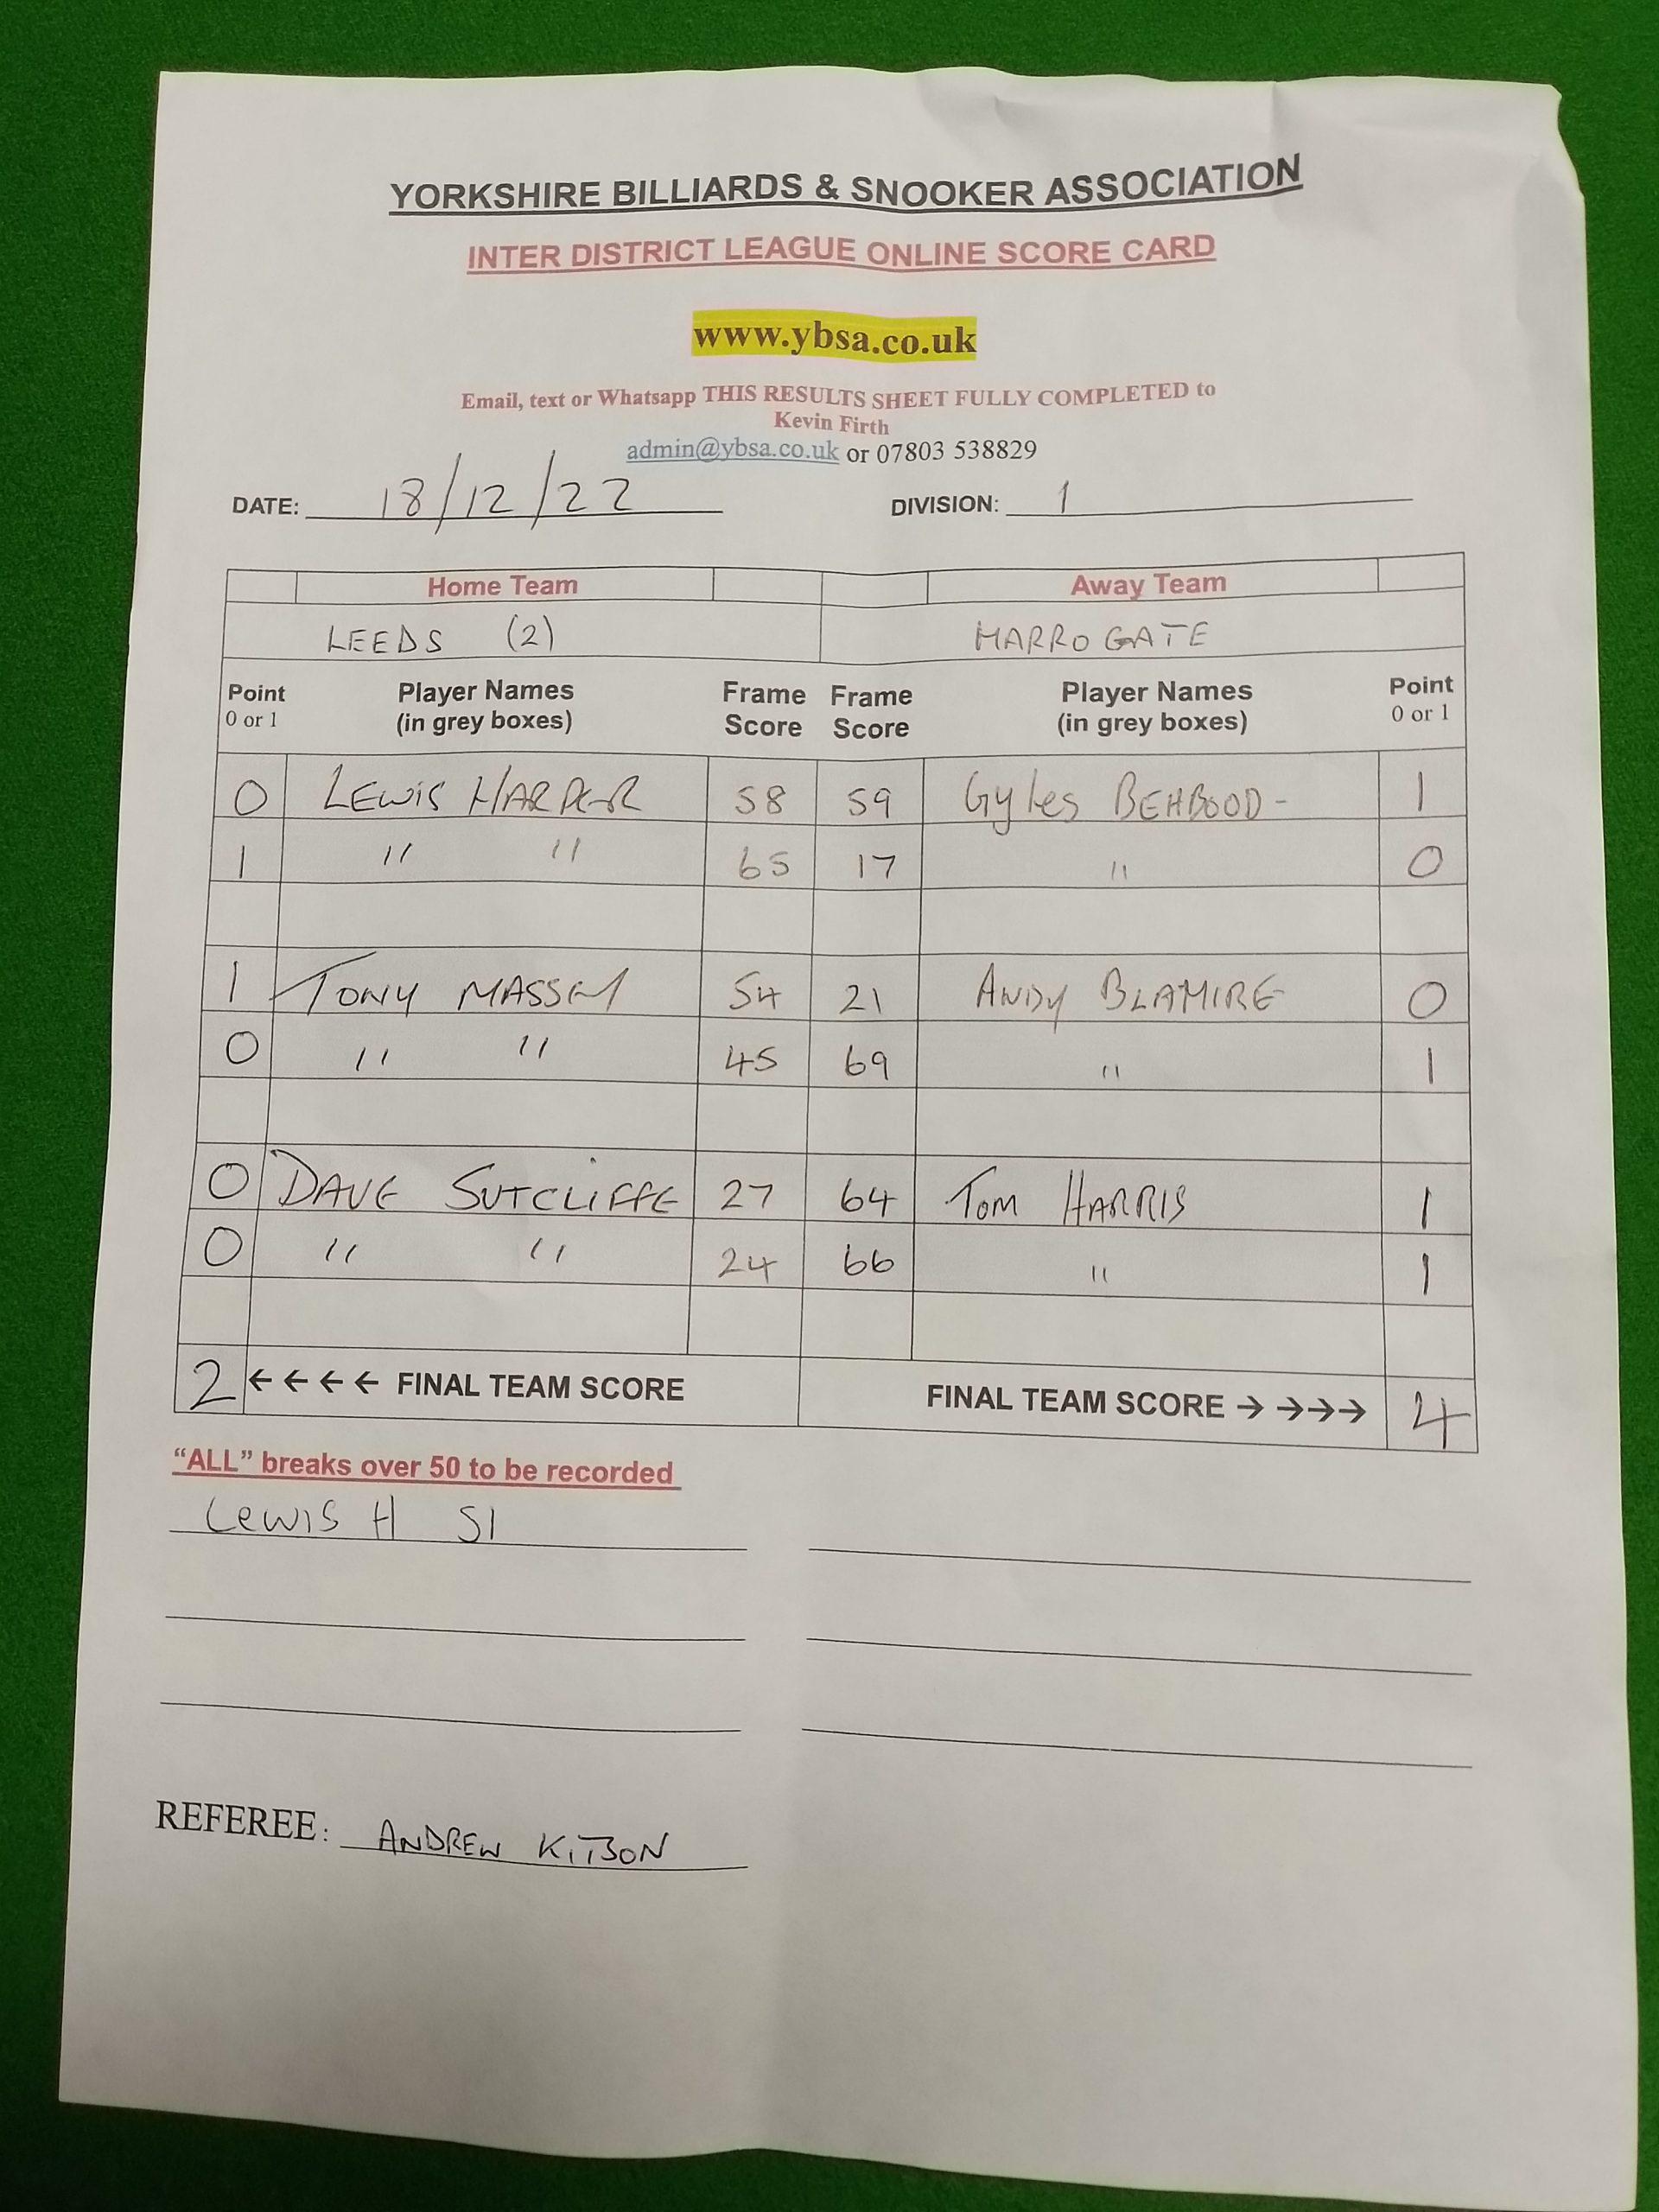 YORKSHIRE BILLIARDS & SNOOKER ASSOCIATION
INTER DISTRICT LEAGUE ONLINE SCORE CARD
www.ybsa.co.uk
Email, text or Whatsapp THIS RESULTS SHEET FULLY COMPLETED to
Kevin Firth
admin@ybsa.co.uk or 07803 538829
DATE: 18/12/22 DIVISION: 1
Home Team Away Team
LEEDS (2) HARROGATE
Point Player Names Frame Frame Player Names Point
0 or 1 (in grey boxes) Score Score (in grey boxes) 0 or 1
0 LEWIS HARPER 58 59 Gyles BEHBOOD- 1
1 " " 65 17 " 0
1 TONY MASSEY 54 21 ANDY BLAMIRE 0
0 " " 45 69 " 1
0 DAVE SUTCLIFFE 27 64 Tom HARRIS 1
0 " " 24 66 " 1
2 ←←←← FINAL TEAM SCORE FINAL TEAM SCORE → →→→ 4
“ALL” breaks over 50 to be recorded
Lewis H 51
REFEREE: ANDREW KITSON